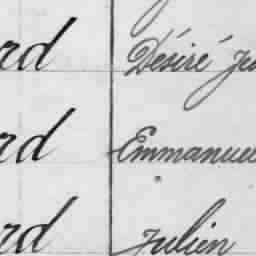 rd Désiré Ju
rd Emmanuel
rd Julien